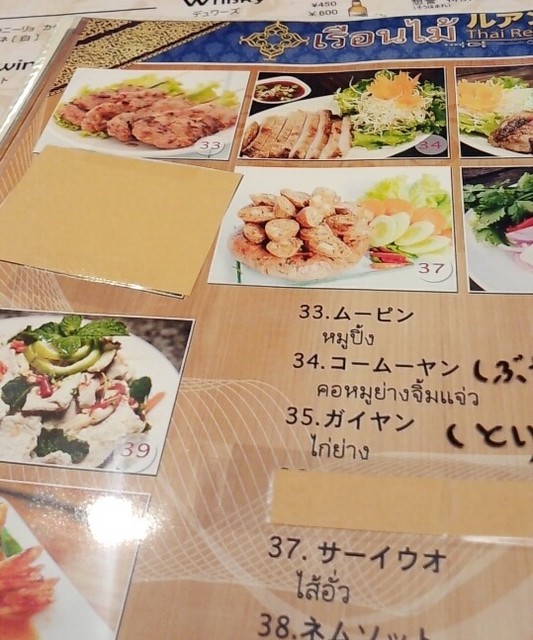 Whisky
デュワーズ
¥450
¥600
เรือนไม้
ルアン
Thai Re
33
34
37
39
33.ムーピン
หมูปิ้ง
34.コームーヤン
คอหมูย่างจิ้มแจ่ว
35.ガイヤン
ไก่ย่าง
37. サーイウオ
ไส้อั่ว
38.ネムソット